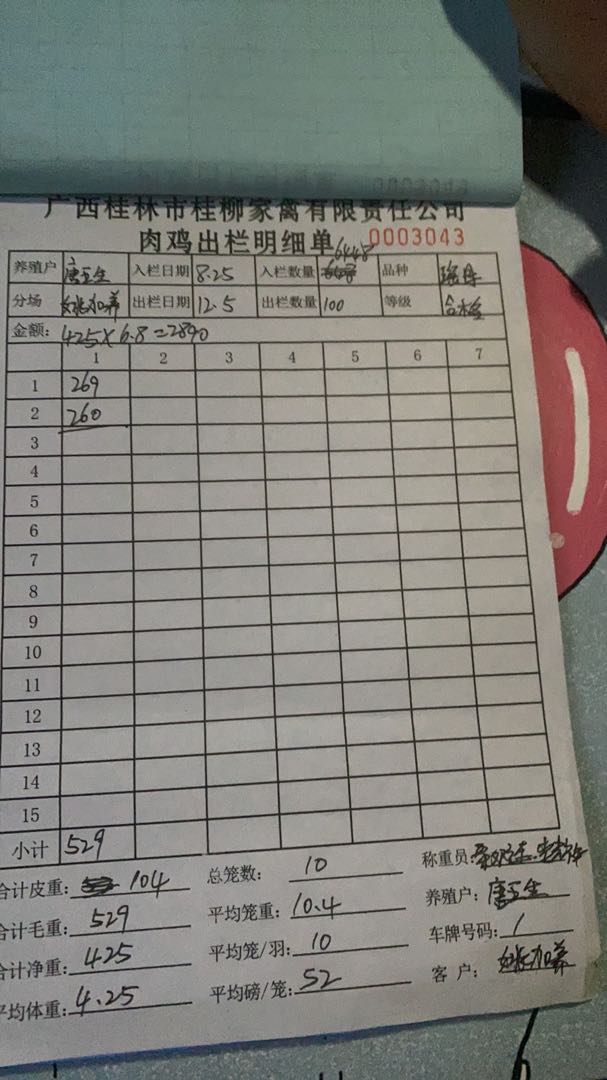 广西桂林市桂柳家禽有限责任公司
肉鸡出栏明细单 0003043
养殖户 入栏日期 8.25 入栏数量 6448 品种
分场 加养 出栏日期 12.5 出栏数量 100 等级
金额: 425×6.8=2890
1 2 3 4 5 6 7
1 269
2 260
3
4
5
6
7
8
9
10
11
12
13
14
15
小计 529
合计皮重: 104 总笼数: 10 称重员:
合计毛重: 529 平均笼重: 10.4 养殖户:
合计净重: 425 平均笼/羽: 10 车牌号码: 1
平均体重: 4.25 平均磅/笼: 52 客户: 加养